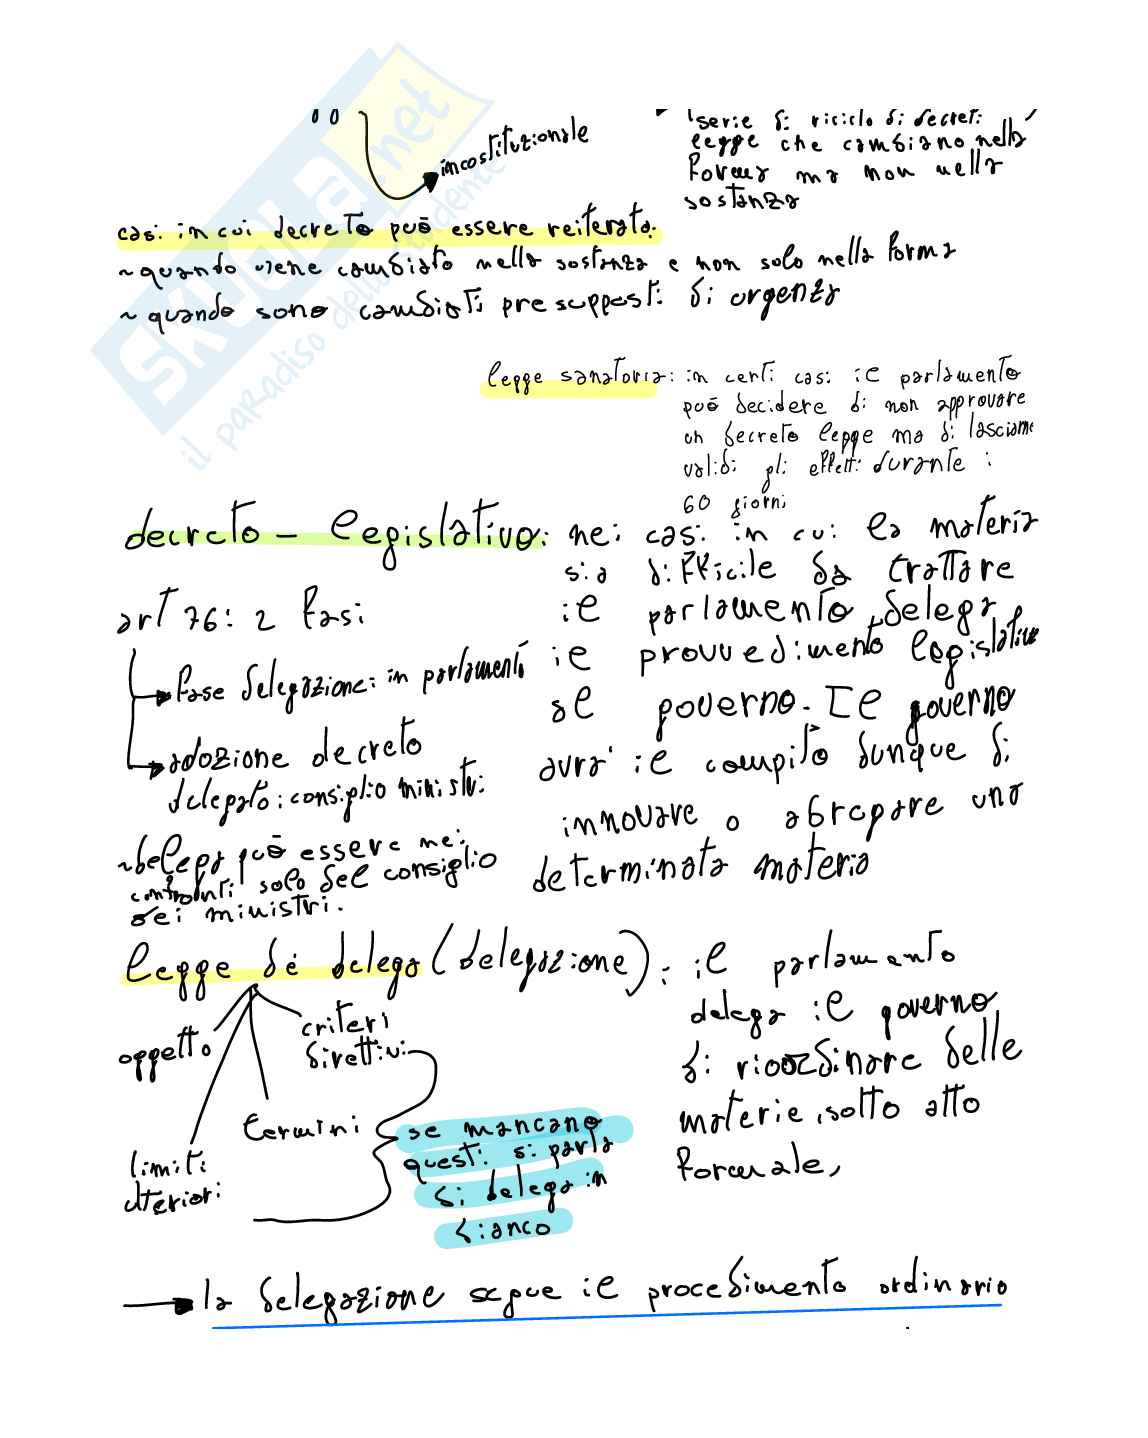 incostituzionale
serie di riciclo di decreti
legge che cambiano nella
forma ma non nella
sostanza
casi in cui decreto può essere reiterato:
~quando viene cambiato nella sostanza e non solo nella forma
~quando sono cambiati presupposti di urgenza
legge sanatoria: in certi casi il parlamento
può decidere di non approvare
un decreto legge ma di lasciarne
validi gli effetti durante i
60 giorni
decreto - legislativo: nei casi in cui la materia
sia difficile da trattare
il parlamento delega
il provvedimento legislativo
al governo. Il governo
avra' il compito dunque di
innovare o abrogare una
determinata materia
art 76: 2 fasi
fase delegazione: in parlamento
adozione decreto
delegato: consiglio ministri
~delega può essere nei
confronti solo del consiglio
dei ministri.
legge di delega (delegazione): il parlamento
delega il governo
di riordinare delle
materie, sotto atto
formale,
oggetto
criteri
direttivi
termini
limiti
ulteriori
se mancano
questi si parla
di delega in
bianco
la delegazione segue il procedimento ordinario
SKUOLA.net
il paradiso dello studente